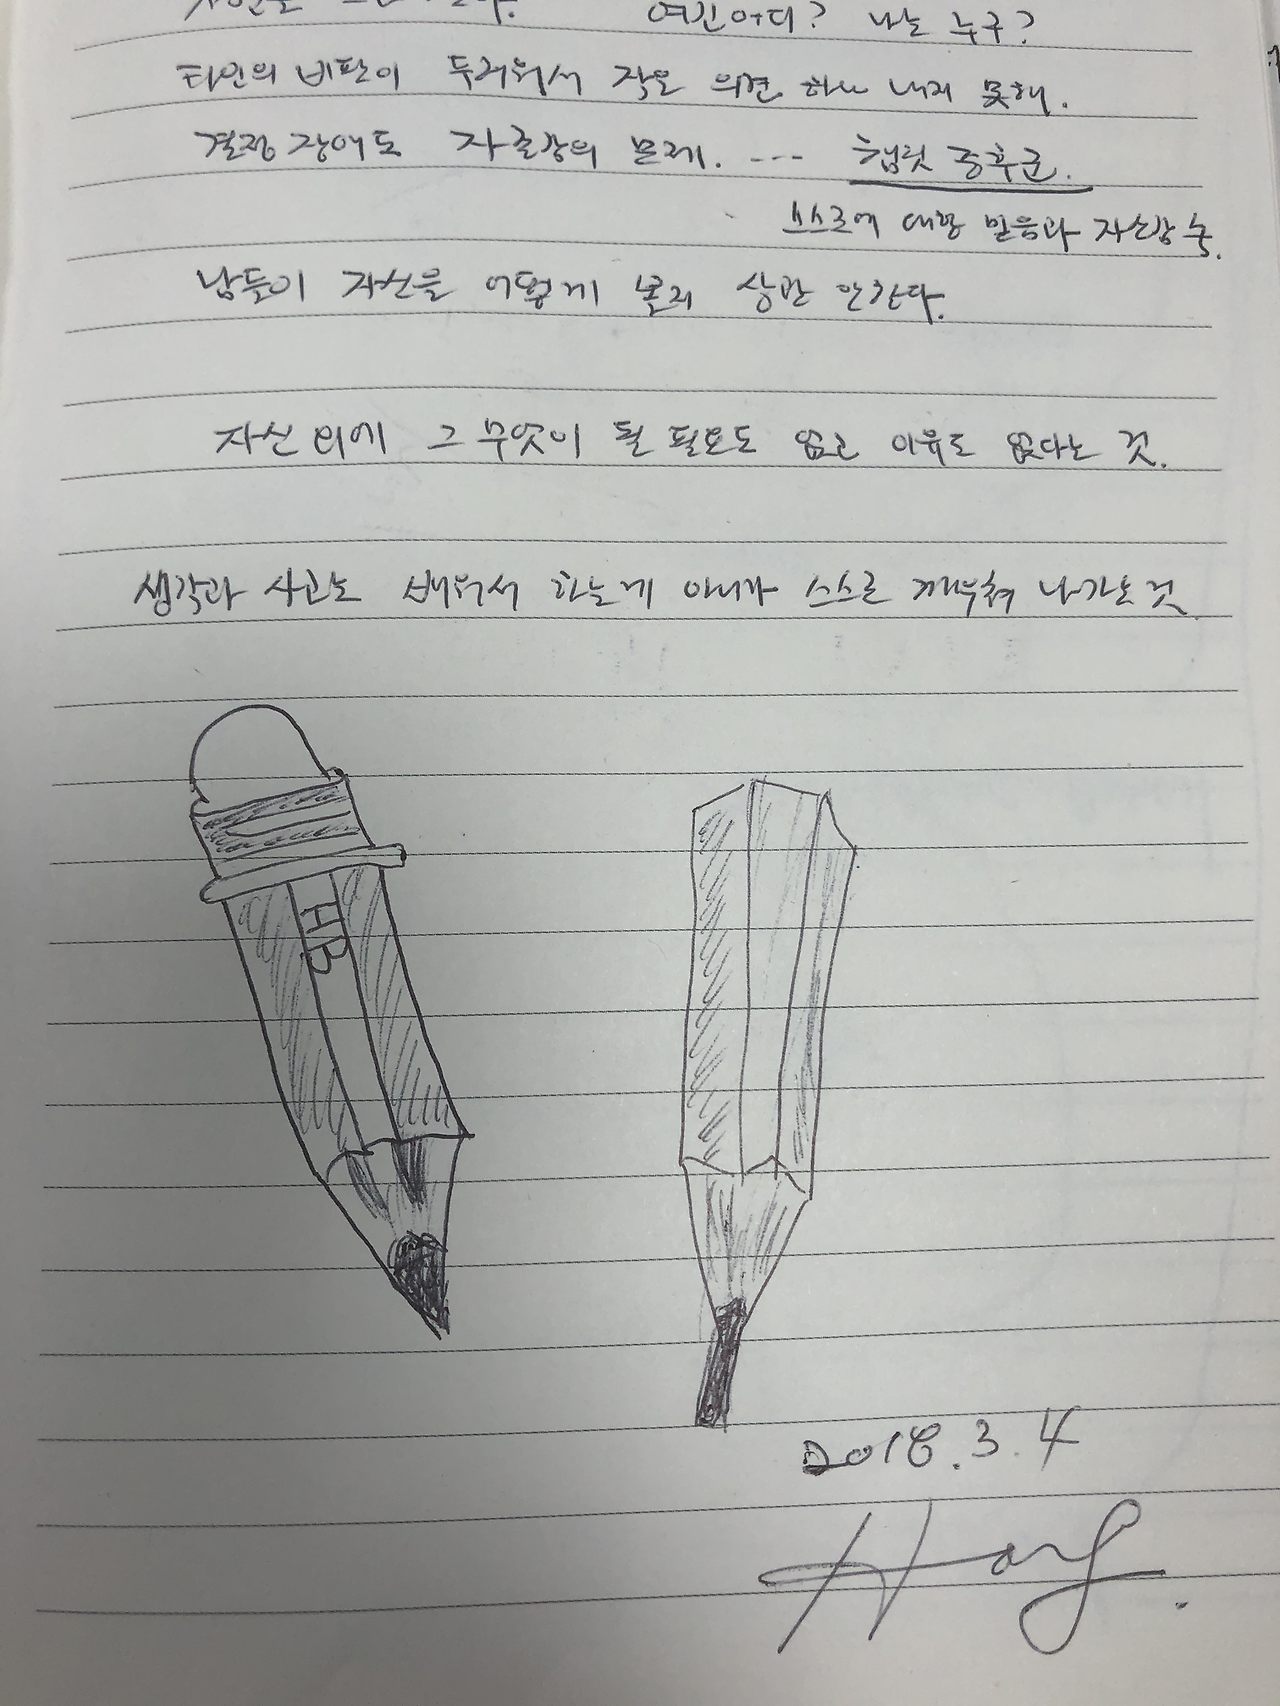 여긴어디? 나는 누구?
타인의 비판이 두려워서 작은 의견 하나 내지 못해.
결정 장애도 자존감의 문제. --- 햄릿 증후군.
스스로에 대한 믿음과 자신감 
남들이 자신을 어떻게 볼지 상관 안한다.
자신 외에 그 무엇이 될 필요도 없고 이유도 없다는 것.
생각과 사고는 배워서 하는게 아니라 스스로 깨우쳐 나가는 것
HB
2018.3.4
Hong.